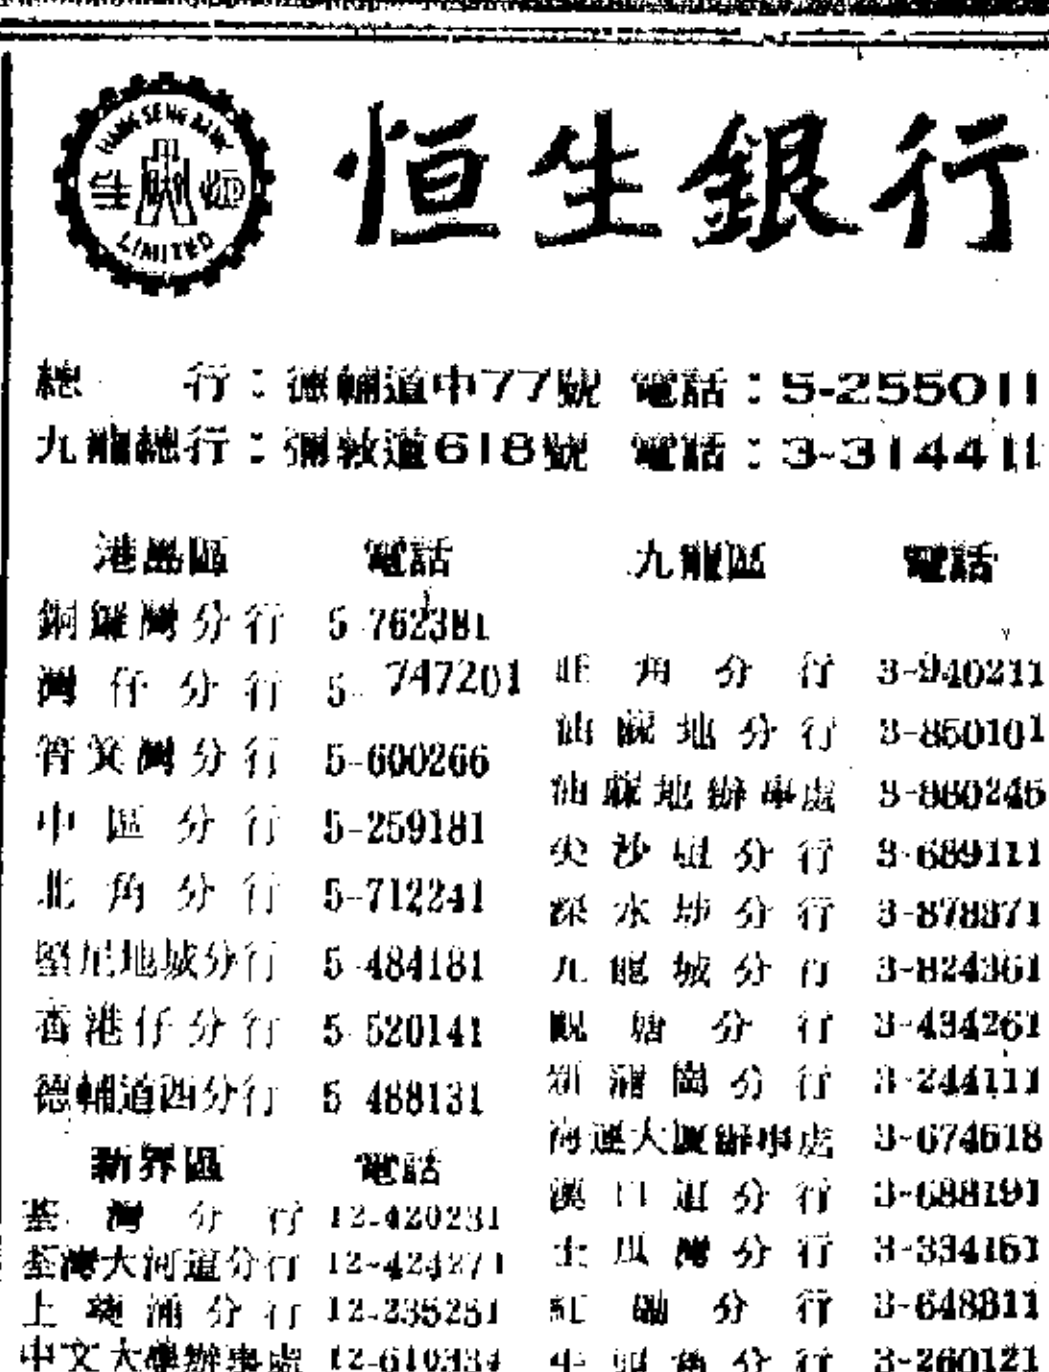 HANG SENG BANK
生 恒
LIMITED
恒生銀行
總 行：德輔道中77號 電話：5-255011
九龍總行：彌敦道618號 電話：3-314411
港島區 電話
銅鑼灣分行 5-762381
灣仔分行 5-747201
筲箕灣分行 5-600266
中區分行 5-259181
北角分行 5-712241
堅尼地城分行 5-484181
香港仔分行 5-520141
德輔道西分行 5-488131
新界區 電話
荃灣分行 12-420231
荃灣大河道分行 12-424271
上葵涌分行 12-235251
中文大學辦事處 12-610334
九龍區 電話
旺角分行 3-940211
油蔴地分行 3-850101
油蔴地辦事處 3-880245
尖沙咀分行 3-689111
深水埗分行 3-878371
九龍城分行 3-824361
觀塘分行 3-434261
新蒲崗分行 3-244111
海運大廈辦事處 3-674618
漢口道分行 3-688191
土瓜灣分行 3-334161
紅磡分行 3-648311
牛頭角分行 3-260121